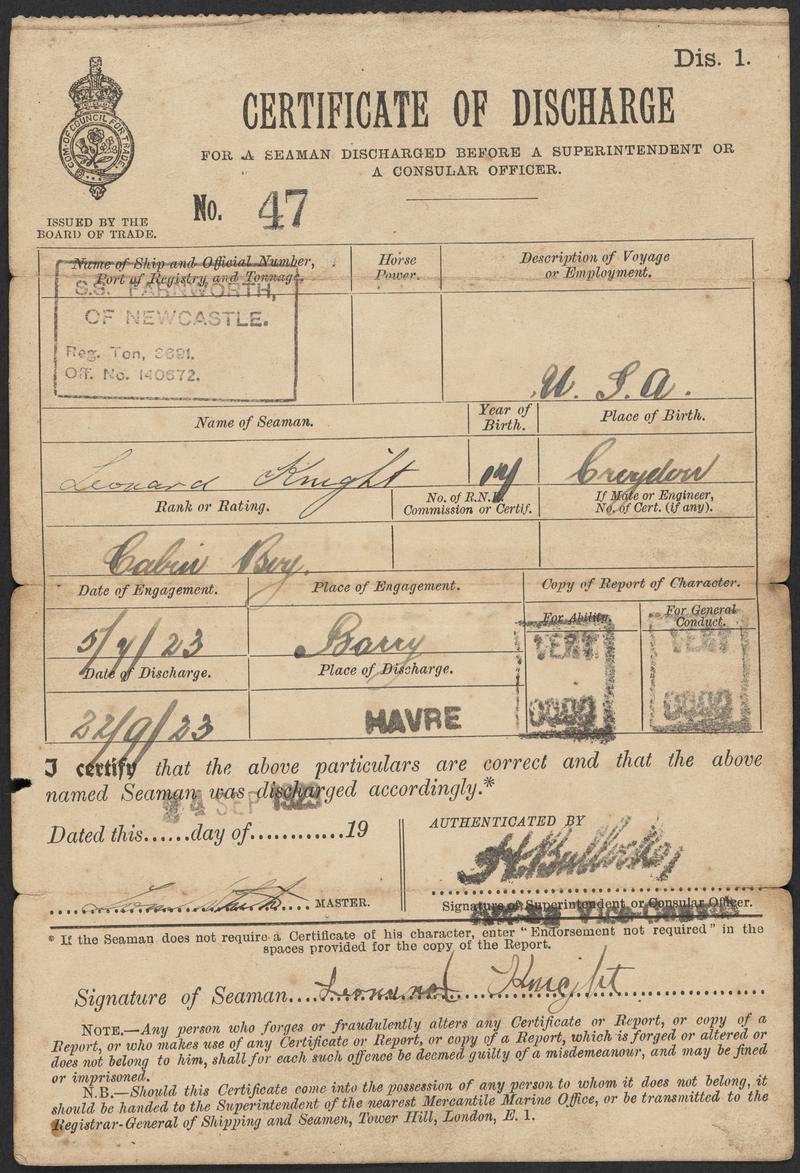 Dis. 1.
COM. OF COUNCIL FOR TRADE
CERTIFICATE OF DISCHARGE
FOR A SEAMAN DISCHARGED BEFORE A SUPERINTENDENT OR
A CONSULAR OFFICER.
No. 47
ISSUED BY THE
BOARD OF TRADE.
Name of Ship and Official Number,
Port of Registry and Tonnage.
Horse
Power.
Description of Voyage
or Employment.
S.S. FARNWORTH,
OF NEWCASTLE.
Reg. Ton, 3691.
Off. No. 140672.
U. S. A.
Name of Seaman.
Year of
Birth.
Place of Birth.
Leonard Knight
Croydon
Rank or Rating.
No. of R.N.R.
Commission or Certif.
If Mate or Engineer,
No. of Cert. (if any).
Cabin Boy.
Date of Engagement.
Place of Engagement.
Copy of Report of Character.
For Ability.
For General
Conduct.
5/7/23
Barry
VERY
GOOD
VERY
GOOD
Date of Discharge.
Place of Discharge.
22/9/23
HAVRE
I certify that the above particulars are correct and that the above
named Seaman was discharged accordingly.*
24 SEP 1923
Dated this......day of............19
AUTHENTICATED BY
MASTER.
Signature of Superintendent or Consular Officer.
Vice-Consul
* If the Seaman does not require a Certificate of his character, enter "Endorsement not required" in the
spaces provided for the copy of the Report.
Signature of Seaman.... Leonard Knight
NOTE.—Any person who forges or fraudulently alters any Certificate or Report, or copy of a
Report, or who makes use of any Certificate or Report, or copy of a Report, which is forged or altered or
does not belong to him, shall for each such offence be deemed guilty of a misdemeanour, and may be fined
or imprisoned.
N.B.—Should this Certificate come into the possession of any person to whom it does not belong, it
should be handed to the Superintendent of the nearest Mercantile Marine Office, or be transmitted to the
Registrar-General of Shipping and Seamen, Tower Hill, London, E. 1.